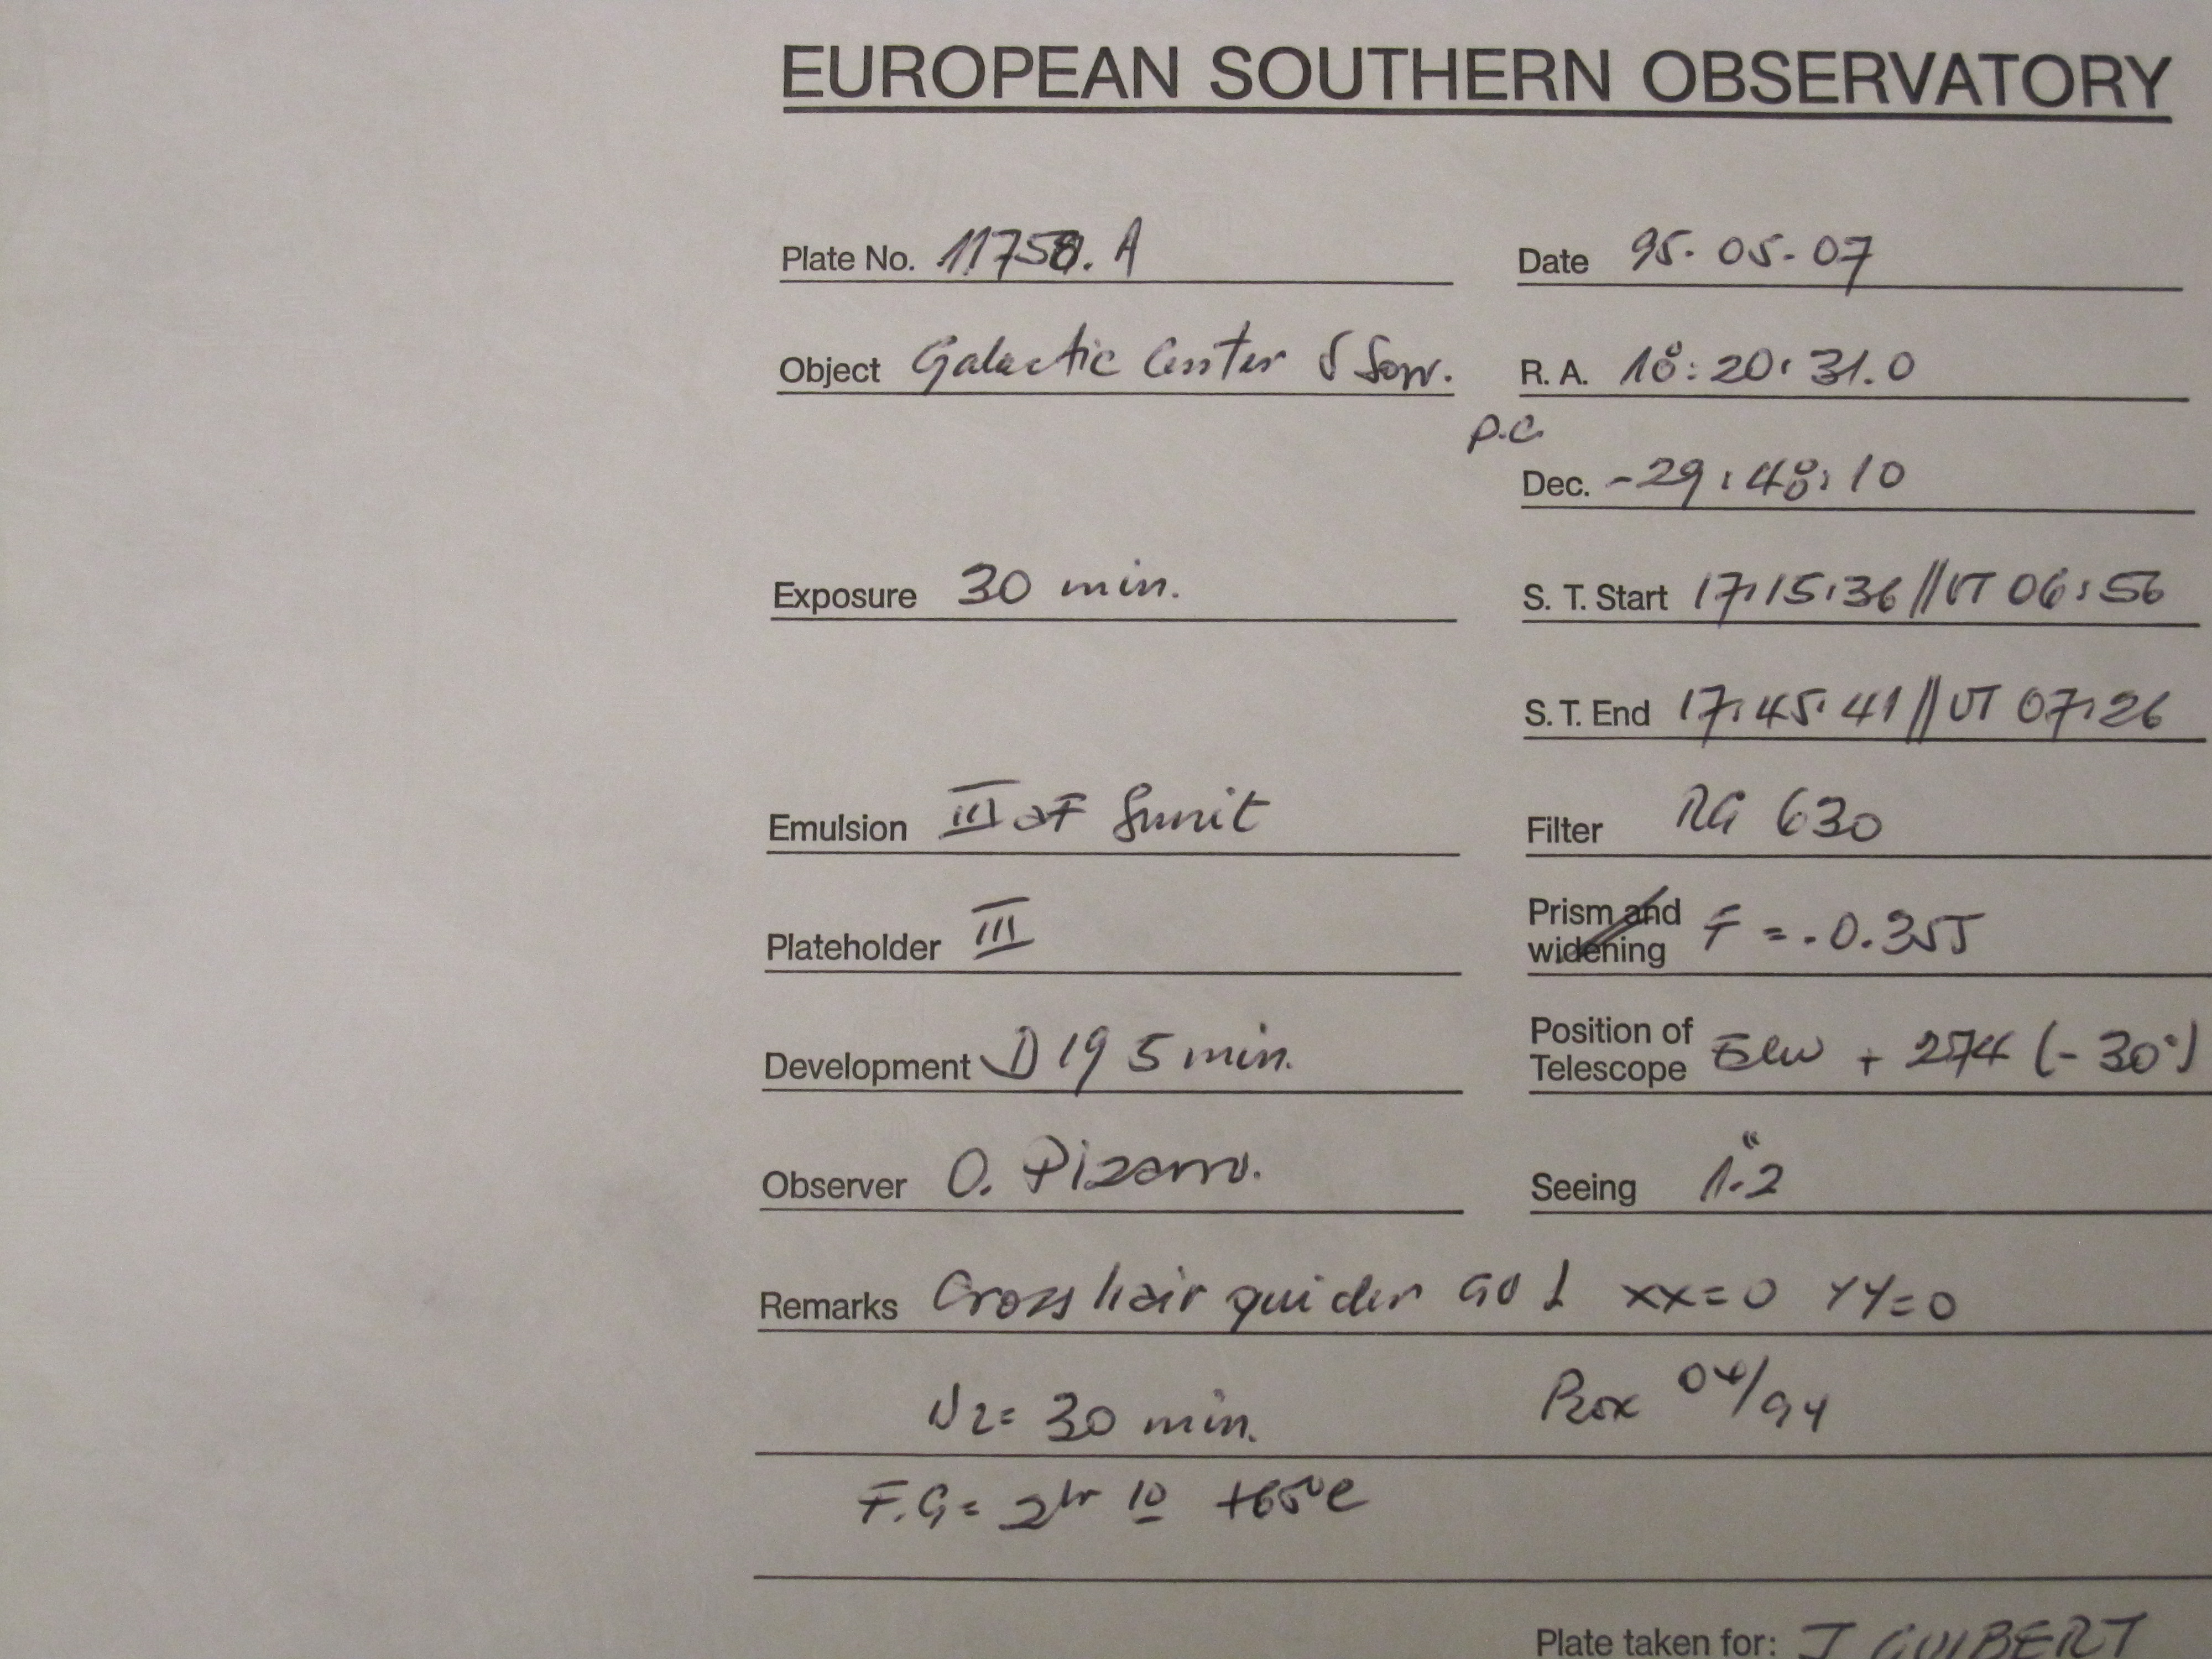 EUROPEAN SOUTHERN OBSERVATORY
Plate No. 11758. A
Date 95. 05. 07
Object Galactic Center
R. A. 18: 20: 31.0
P.C.
Dec. -29: 48: 10
Exposure 30 min.
S. T. Start 17:15:36 // UT 06:56
S. T. End 17:45:41 // UT 07:26
Emulsion III aF
Filter RG 630
Plateholder III
Prism and widening F = -0.355
Development D 19 5 min.
Position of Telescope + 274 (-30°)
Observer O. Pizarro.
Seeing 1".2
Remarks Cross hair guider xx=0 YY=0
N2= 30 min. 04/94
F.G= 2hr 10 +65°C
Plate taken for: J GUIBERT